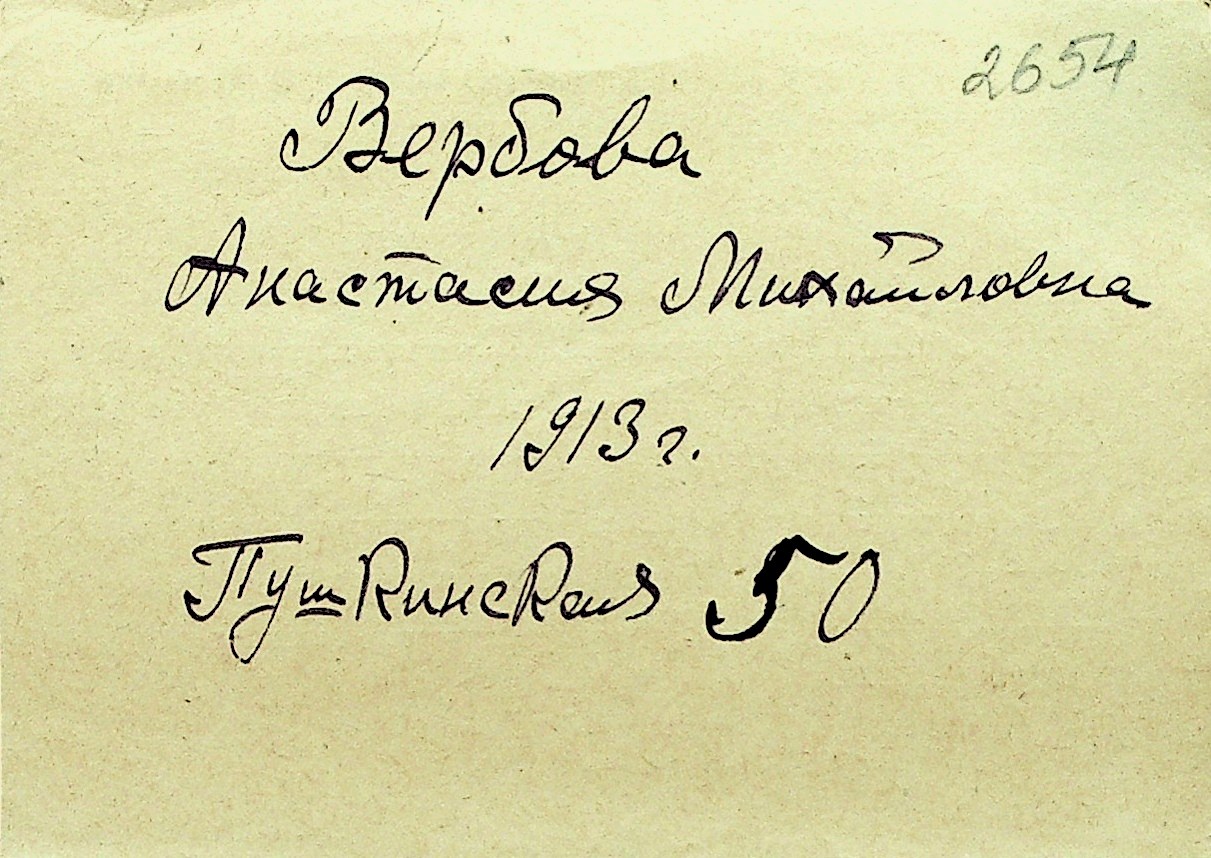 2654
Вербова
Анастасия Михайловна
1913 г.
Пушкинская 50